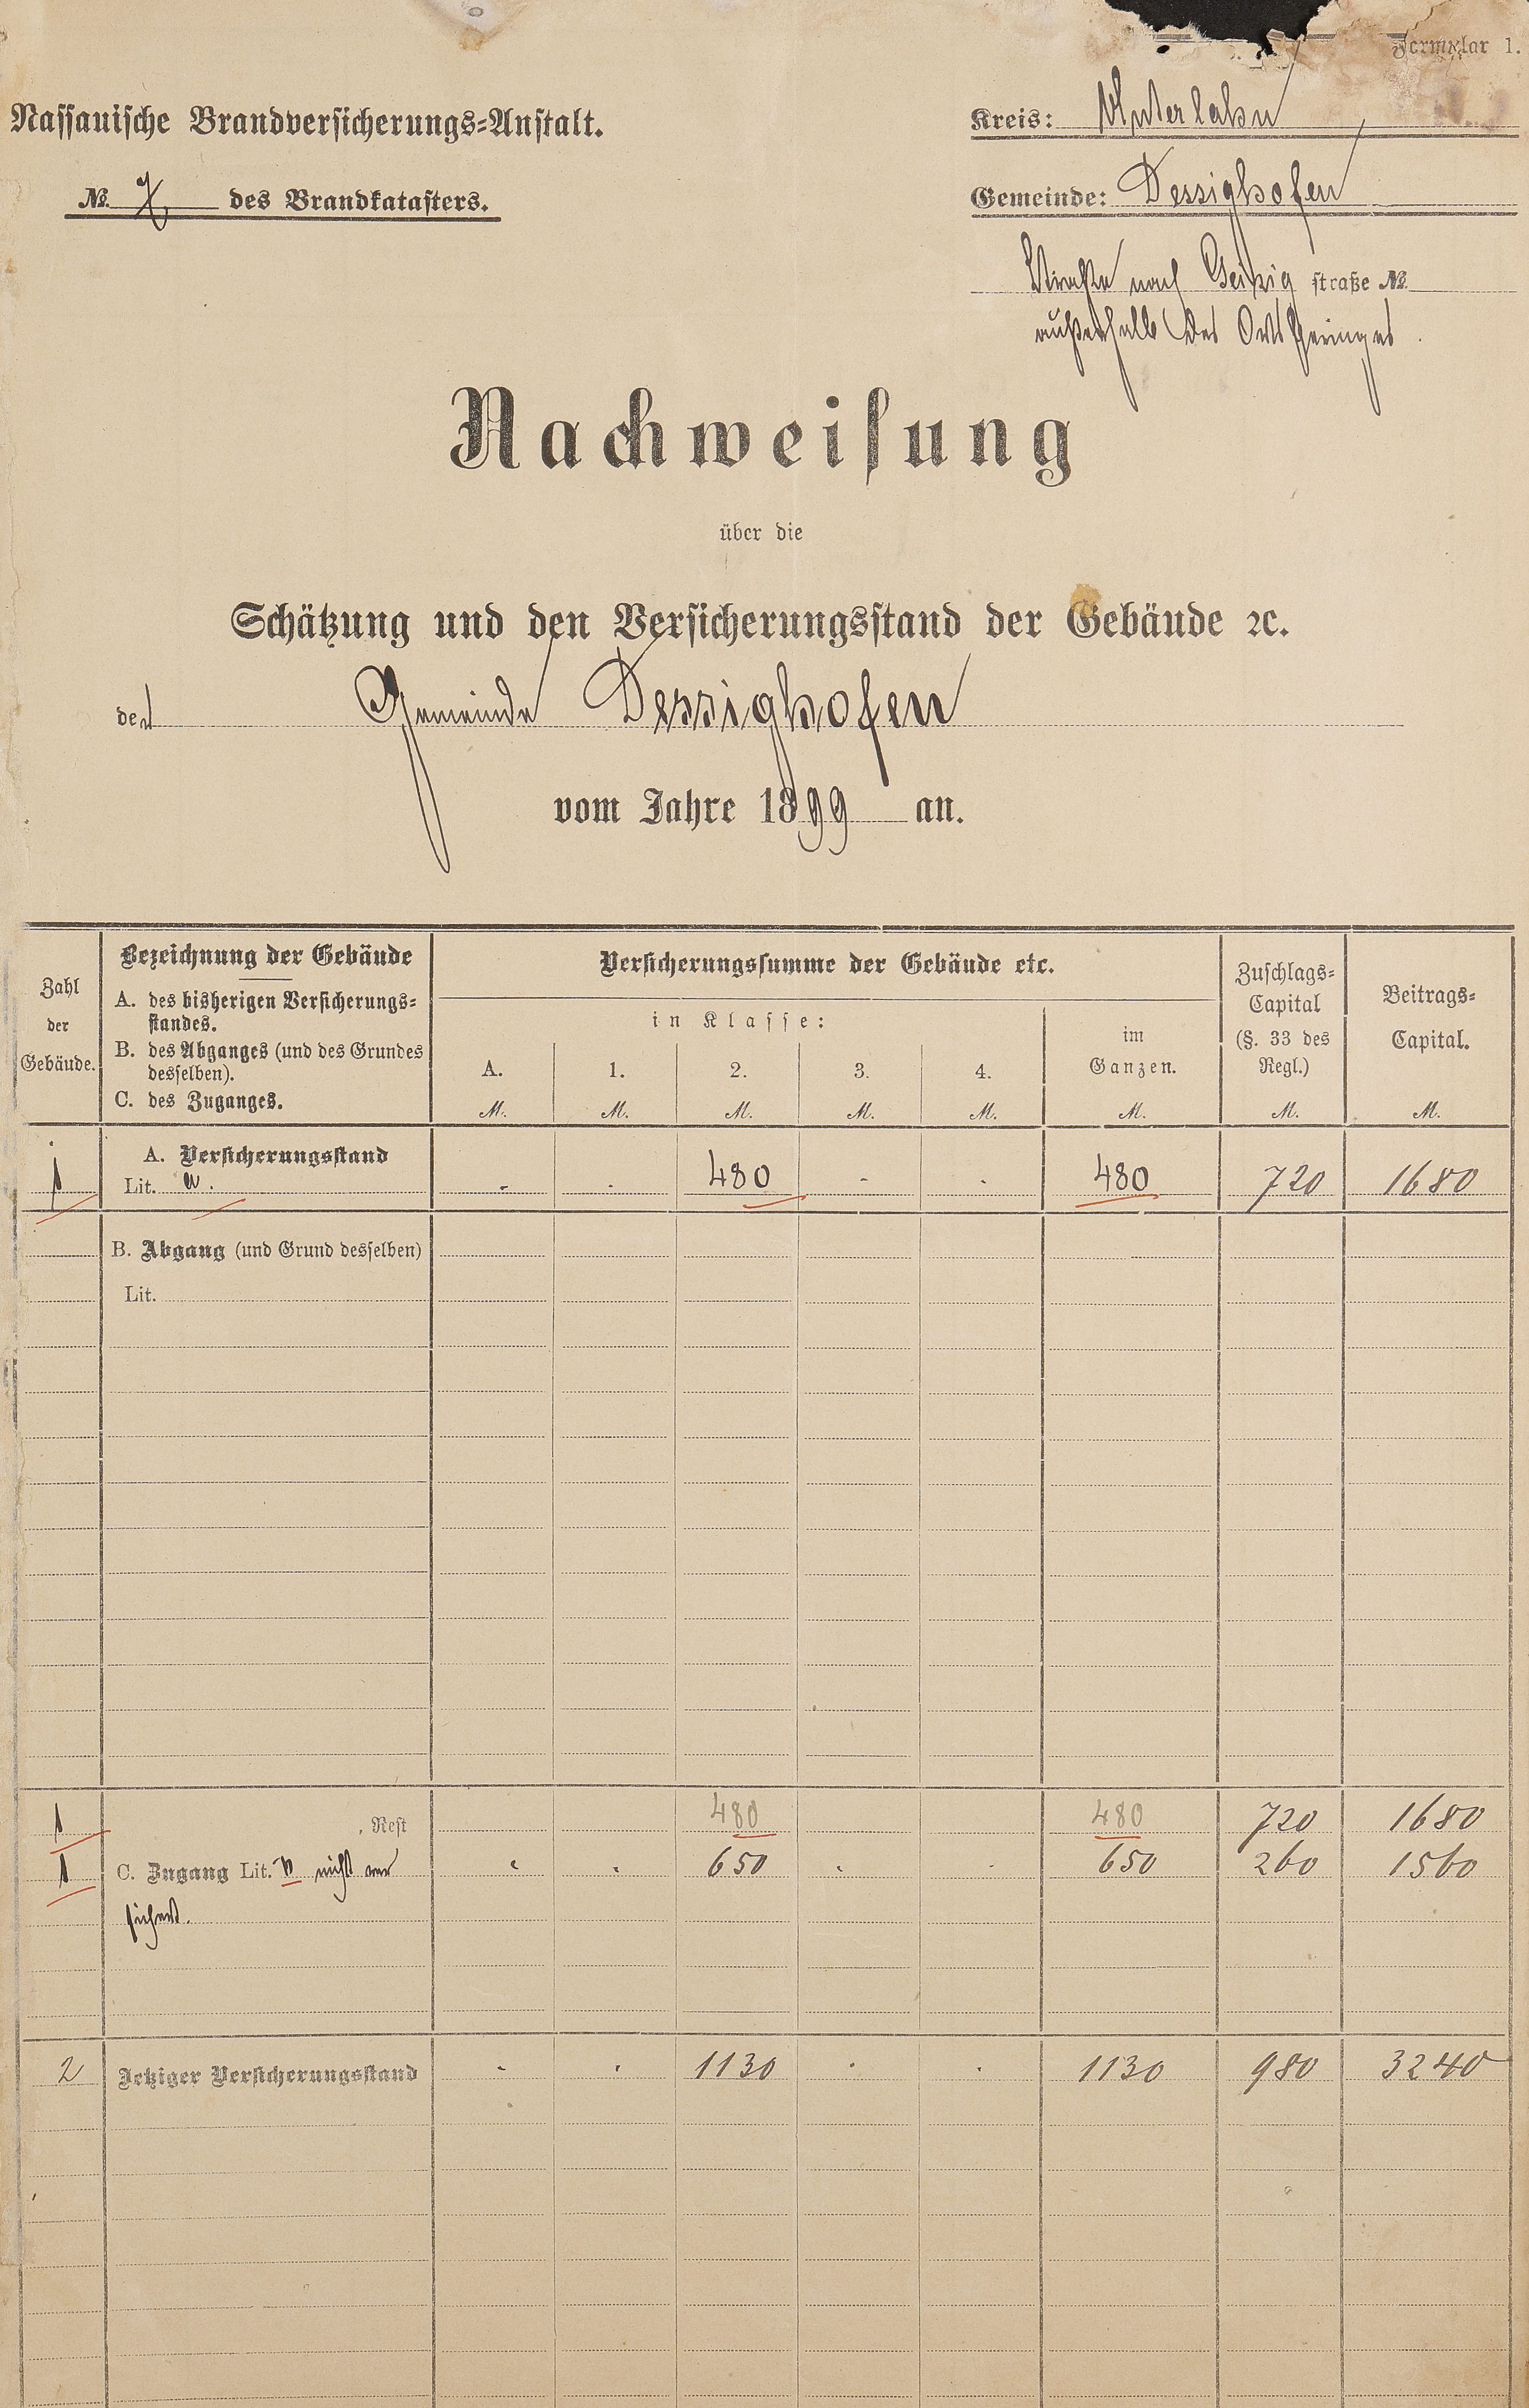 Formular 1.
Nassauische Brandversicherungs=Anstalt.
Kreis: Unterlahn
№ des Brandkatasters.
Gemeinde: Dessighofen
Straße nach Geisig straße №
außerhalb des Ortsberinges.
Nachweisung
über die
Schätzung und den Versicherungsstand der Gebäude ꝛc.
der Gemeinde Dessighofen
vom Jahre 1899 an.
Zahl der Gebäude.
Bezeichnung der Gebäude
A. des bisherigen Versicherungs=
standes.
B. des Abganges (und des Grundes
desselben).
C. des Zuganges.
Versicherungssumme der Gebäude etc.
in Klasse:
A. 1. 2. 3. 4.
im Ganzen.
Zuschlags=
Capital
(§. 33 des
Regl.)
Beitrags=
Capital.
M. M. M. M. M. M. M. M.
A. Versicherungsstand
1 Lit. a. - . 480 - . 480 720 1680
B. Abgang (und Grund desselben)
Lit.
1 Rest 480 480 720 1680
1 C. Zugang Lit. b nicht ver 650 650 260 1560
sichert.
2 Jetziger Versicherungsstand - . 1130 . . 1130 980 3240